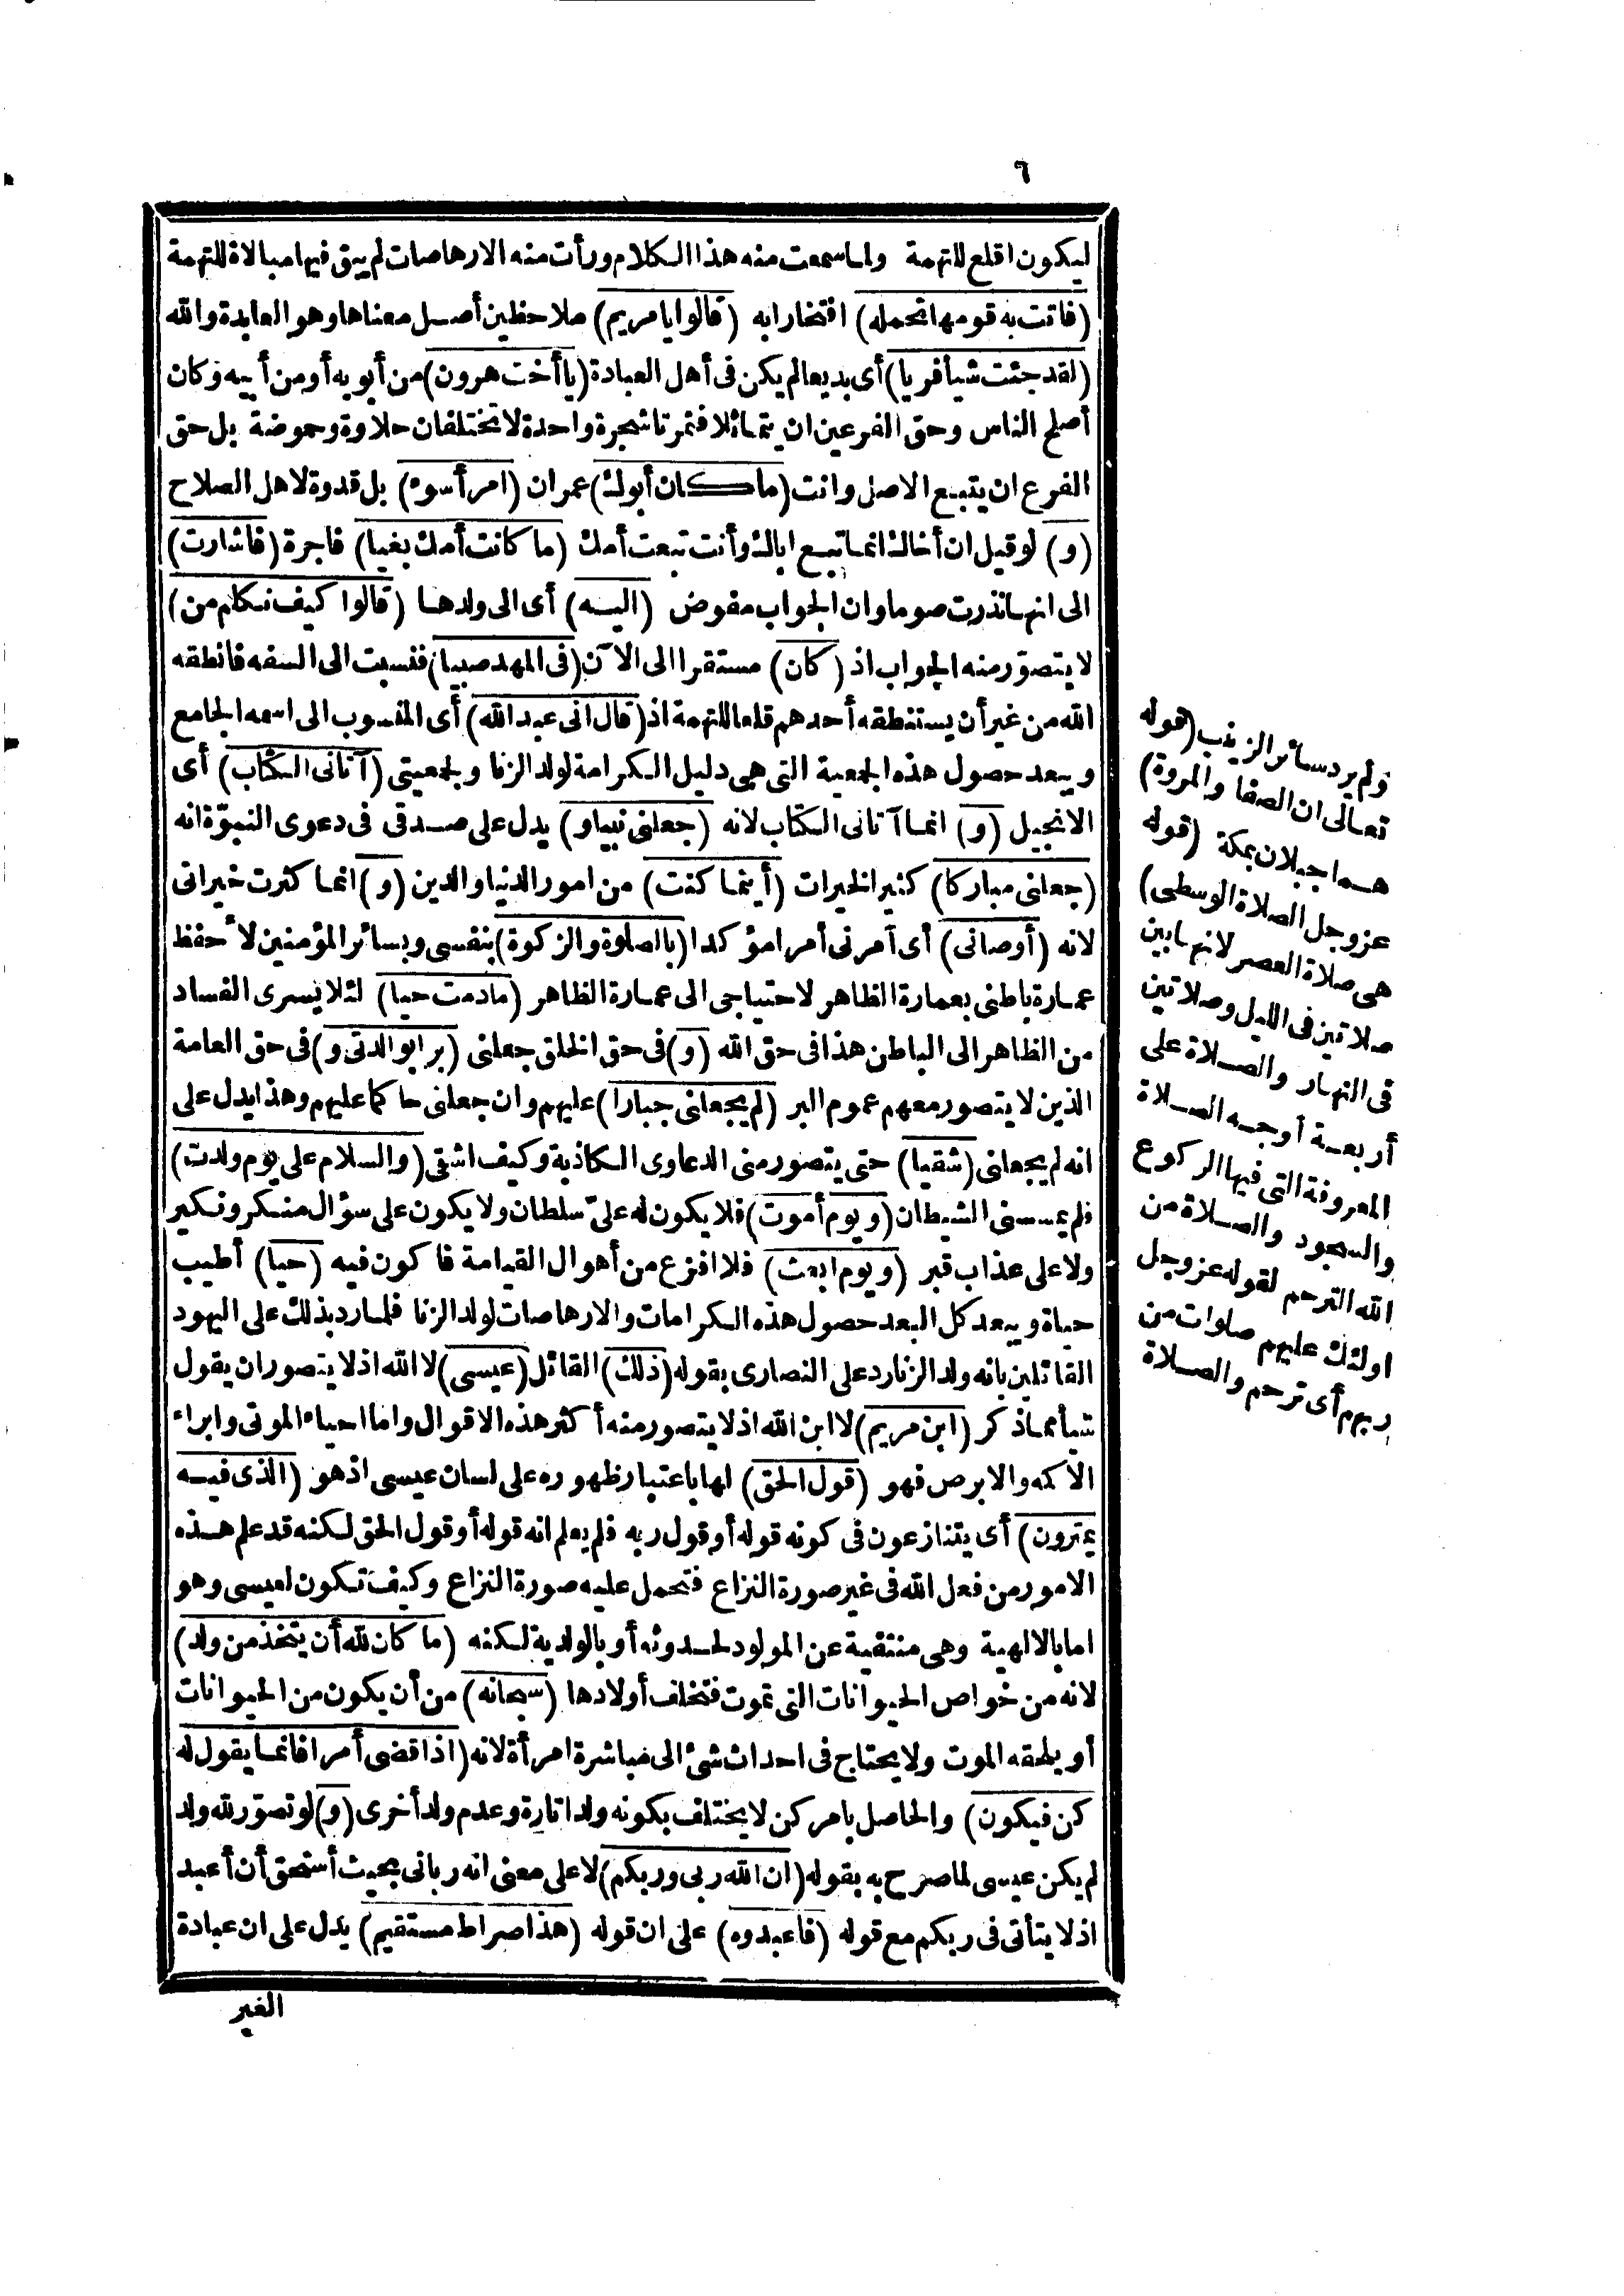 ٦
ليكون اقلع للتهمة ولما سمعت منه هذا الكلام ورأت منه الارهاصات لم يبق فيها مبالاة للتهمة
(فاتت به قومها تحمله) افتخارا به (قالوا يا مريم) ملاحظين أصل معناها وهو العابدة والله
(لقد جئت شيأ فريا) أى بديعا لم يكن فى أهل العبادة (يا أخت هرون) من أبويه أو من أبيه وكان
أصلح الناس وحق الفرعين ان يتماثلا فثمرتا شجرة واحدة لا تختلفان حلاوة وحموضة بل حق
الفرع ان يتبع الاصل وانت (ما كان أبوك) عمران (امرأ سوء) بل قدوة لاهل الصلاح
(و) لو قيل ان أخاك انما تبع اباك وأنت تبعت أمك (ما كانت أمك بغيا) فاجرة (فاشارت)
الى انها نذرت صوما وان الجواب مفوض (اليه) أى الى ولدها (قالوا كيف نكلم من)
لا يتصوّر منه الجواب اذ (كان) مستقرا الى الآن (فى المهد صبيا) فنسبت الى السفه فانطقه
الله من غير أن يستنطقه أحدهم قلعا للتهمة اذ (قال انى عبد الله) أى المنسوب الى اسمه الجامع
ويبعد حصول هذه الجمعية التى هى دليل الكرامة لولد الزنا ولجمعيتى (آتانى الكتاب) أى
الانجيل (و) انما آتانى الكتاب لانه (جعلنى نبيا و) يدل على صدقى فى دعوى النبوّة انه
(جعلنى مباركا) كثير الخيرات (أينما كنت) من امور الدنيا والدين (و) انما كثرت خيراتى
لانه (أوصانى) أى آمرنى أمرا مؤكدا (بالصلوة والزكوة) بنفسى وبسائر المؤمنين لأحفظ
عمارة باطنى بعمارة الظاهر لاحتياجى الى عمارة الظاهر (مادمت حيا) لئلا يسرى الفساد
من الظاهر الى الباطن هذا فى حق الله (و) فى حق الخلق جعلنى (برا بوالدتى و) فى حق العامة
الذين لا يتصور معهم عموم البر (لم يجعلنى جبارا) عليهم وان جعلنى حاكما عليهم وهذا يدل على
انه لم يجعلنى (شقيا) حتى يتصور منى الدعاوى الكاذبة وكيف اشقى (والسلام على يوم ولدت)
فلم يمسسنى الشيطان (ويوم أموت) فلا يكون له علىّ سلطان ولا يكون على سؤال منكر ونكير
ولا على عذاب قبر (ويوم ابعث) فلا افزع من أهوال القيامة فاكون فيه (حيا) أطيب
حياة ويبعد كل البعد حصول هذه الكرامات والارهاصات لولد الزنا فلما رد بذلك على اليهود
القائلين بانه ولد الزنا رد على النصارى بقوله (ذلك) القائل (عيسى) لا الله اذ لا يتصور ان يقول
شيأ مما ذكر (ابن مريم) لا ابن الله اذ لا يتصور منه أكثر هذه الاقوال واما احياء الموتى وابراء
الاكمه والابرص فهو (قول الحق) لها باعتبار ظهوره على لسان عيسى اذ هو (الذى فيه
يمترون) أى يتنازعون فى كونه قوله أو قول ربه فلم يعلم انه قوله أو قول الحق لكنه قد علم هذه
الامور من فعل الله فى غير صورة النزاع فتحمل عليه صورة النزاع وكيف تكون لعيسى وهو
اما بالالهية وهى منتفية عن المولود لحدوثه أو بالولدية لكنه (ما كان لله أن يتخذ من ولد)
لانه من خواص الحيوانات التى تموت فتخلف أولادها (سبحانه) من أن يكون من الحيوانات
أو يلحقه الموت ولا يحتاج فى احداث شئ الى مباشرة امرأة لانه (اذا قضى أمرا فانما يقول له
كن فيكون) والحاصل بامر كن لا يختلف بكونه ولدا تارة وعدم ولد أخرى (و) لو تصوّر لله ولد
لم يكن عيسى لما صرح به بقوله (ان الله ربى وربكم) لا على معنى انه ربانى بحيث أستحق أن أعبد
اذ لا يتأتى فى ربكم مع قوله (فاعبدوه) على ان قوله (هذا صراط مستقيم) يدل على ان عبادة
الغير
ولم يرد سائر الزينب (قوله
تعالى ان الصفا والمروة)
هما جبلان بمكة (قوله
عزوجل الصلاة الوسطى)
هى صلاة العصر لانها بين
صلاتين فى الليل وصلاتين
فى النهار والصلاة على
أربعة أوجه الصلاة
المعروفة التى فيها الركوع
والسجود والصلاة من
الله الترحم لقوله عزوجل
اولئك عليهم صلوات من
ربهم أى ترحم والصلاة